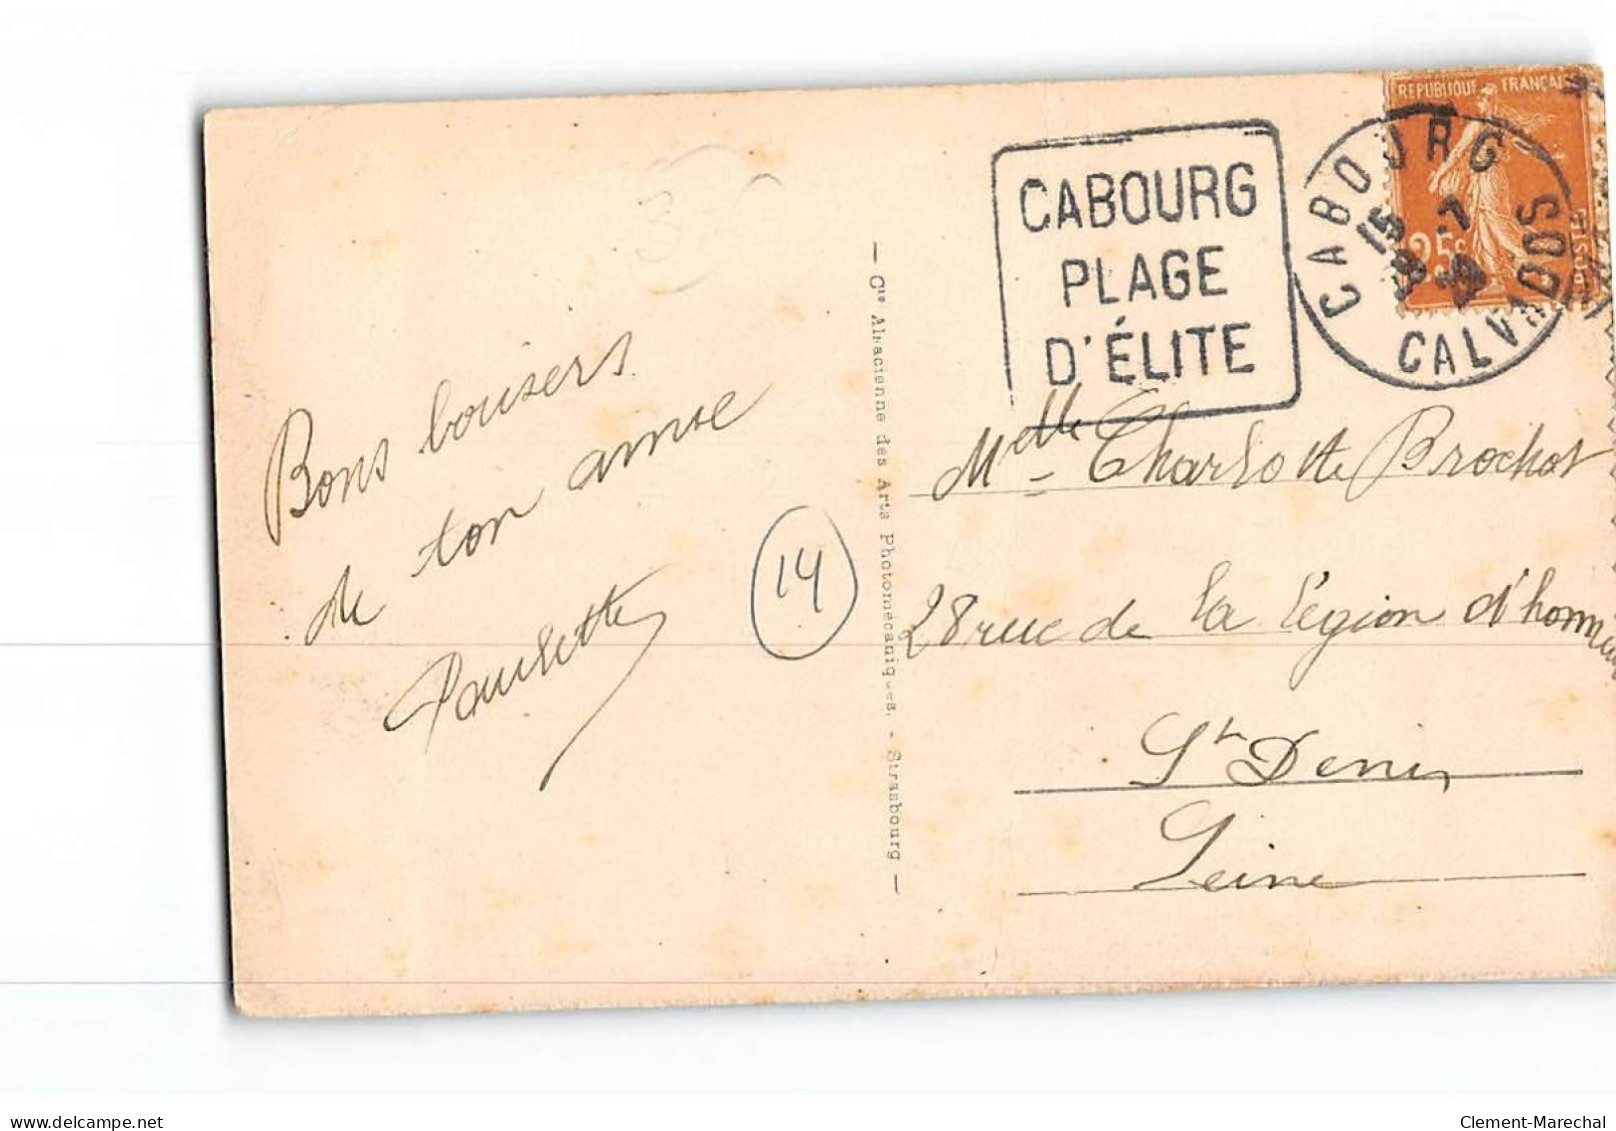 REPUBLIQUE FRANÇAISE
25c
POSTES
CABOURG
CALVADOS
15 -7
CABOURG
PLAGE
D'ÉLITE
Bons baisers
de ton amie
Paulette
14
— Cie Alsacienne des Arts Photomécaniques. - Strasbourg —
Melle Charlotte Brochot
28 rue de la Légion d'honneur
St Denis
Seine
delcampe.net
Clement-Marechal